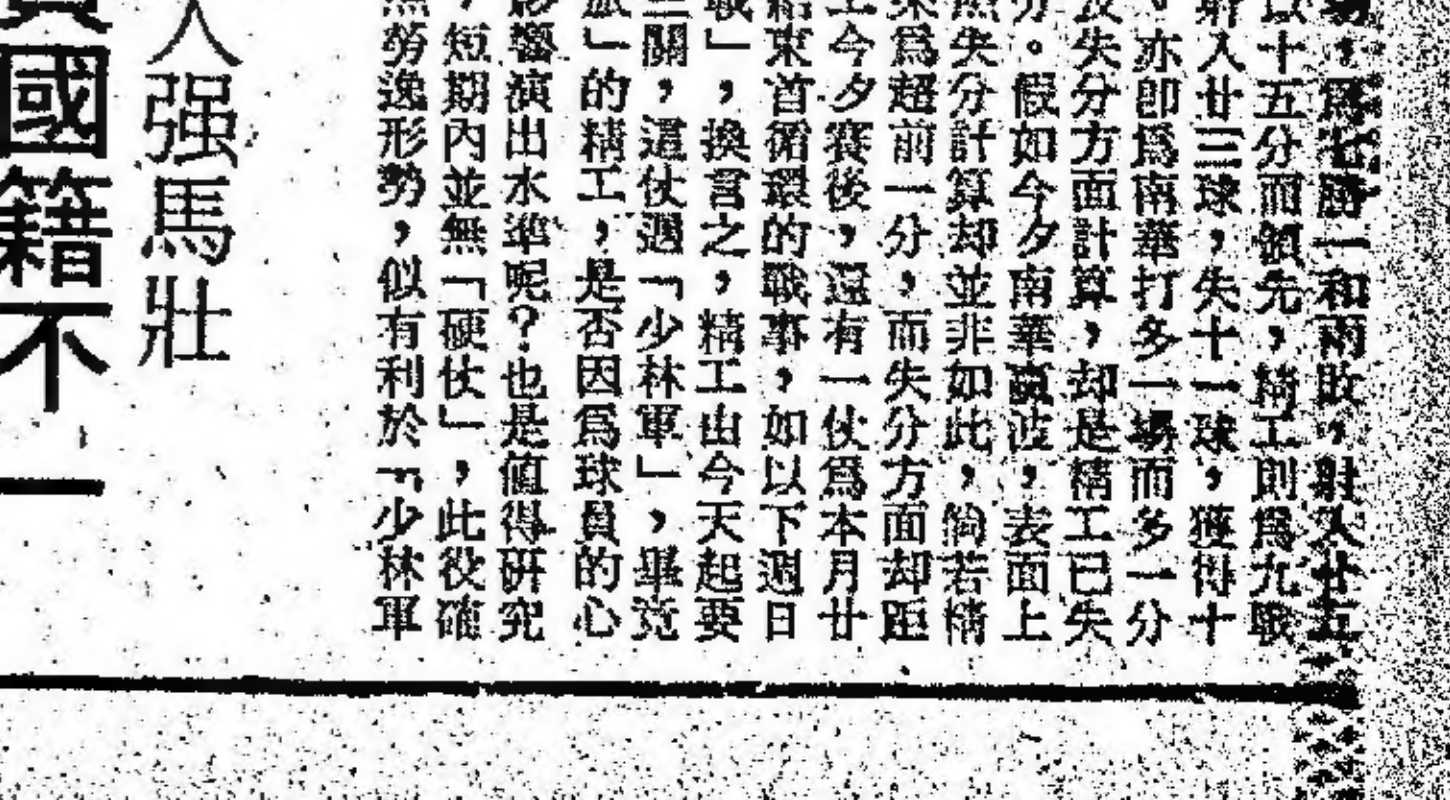 場，為七勝一和兩敗，射入廿五
以十五分而領先，精工則爲九戰
射入廿三球，失十一球，獲得十
，亦即爲南華打多一場而多一分
失分方面計算，却是精工已失
分。假如今夕南華贏波，表面上
然失分計算却並非如此，倘若精
來爲超前一分，而失分方面却距
工今夕賽後，還有一仗爲本月廿
結束首循環的戰事，如以下週日
戰」，換言之，精工由今天起要
三關，這仗遇「少林軍」，畢竟
旅」的精工，是否因爲球員的心
影響演出水準呢？也是值得研究
，短期內並無「硬仗」，此役確
無勞逸形勢，似有利於「少林軍
人强馬壯
國籍不一